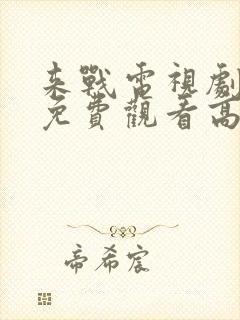 来戰電視劇
免費觀看高
帝希宸